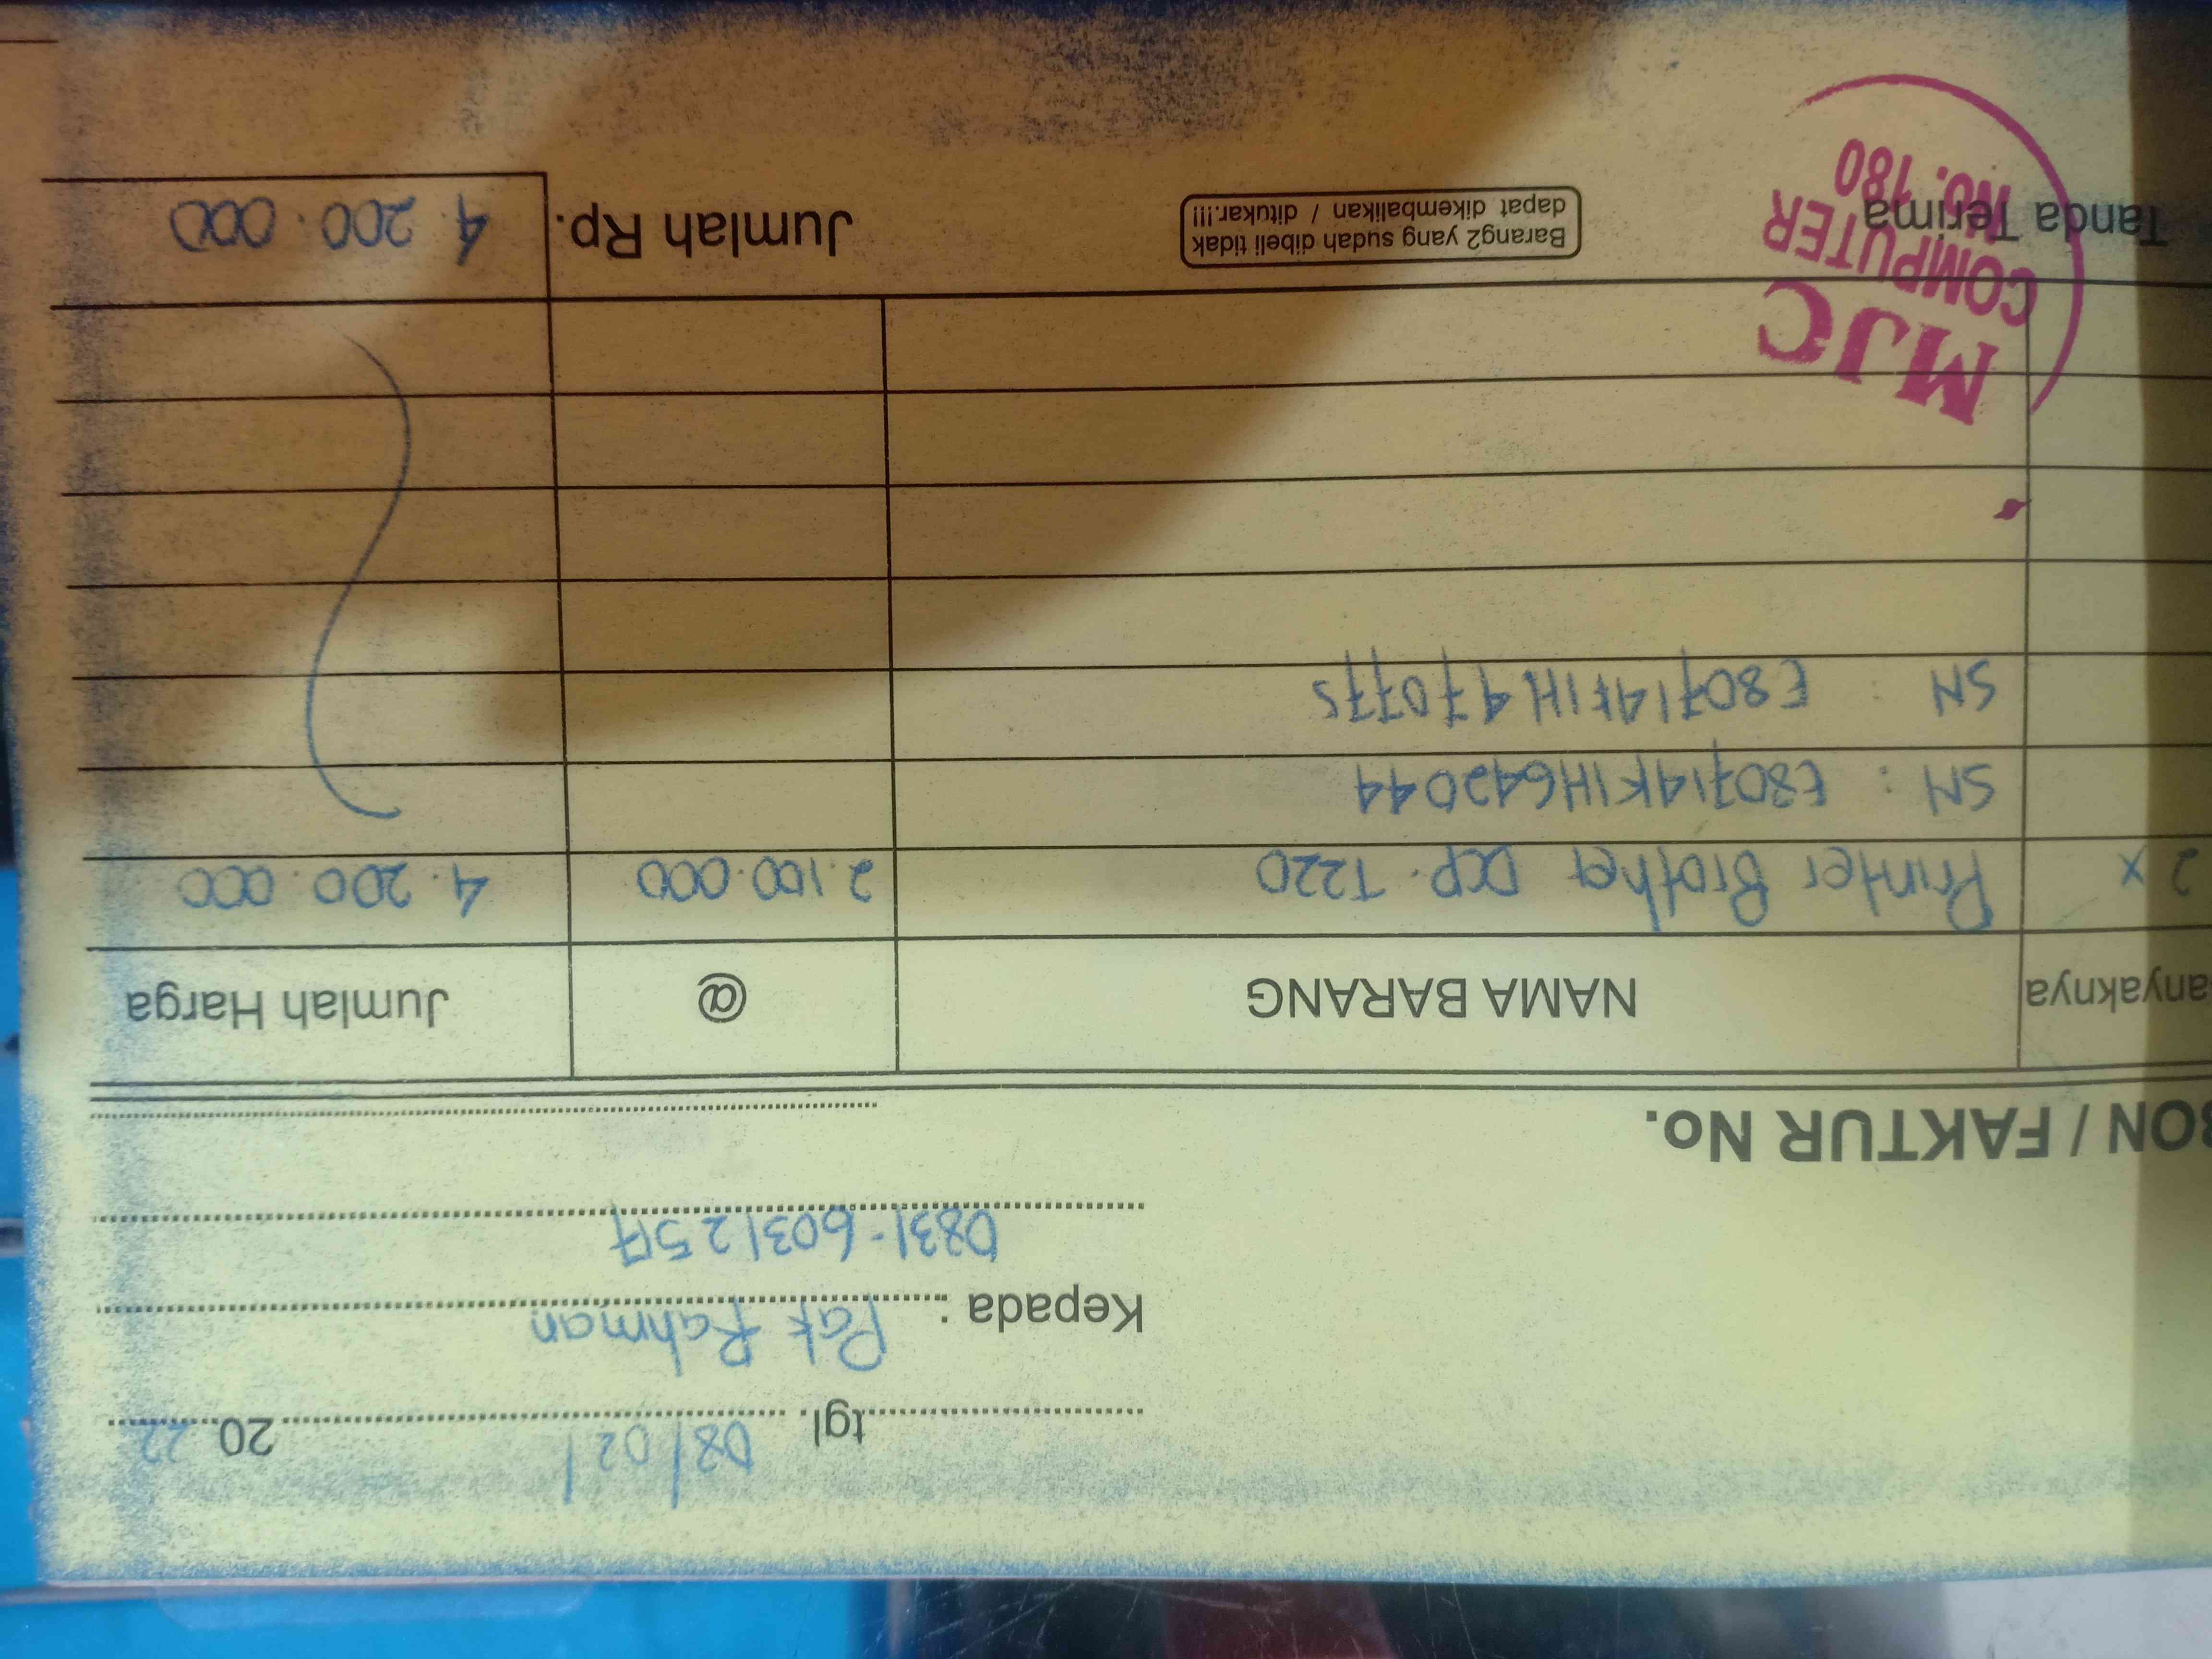 tgl. 08/02/ 20 22
Kepada : Pak Rahman
0831-60312517
BON / FAKTUR No.
anyaknya NAMA BARANG @ Jumlah Harga
2 x Printer Brother DCP. T220 2.100.000 4.200.000
SN : E80714K1H642044
SN : E80714F1H470775
Tanda Terima
Barang2 yang sudah dibeli tidak
dapat dikembalikan / ditukar.!!!
Jumlah Rp. 4.200.000
MJC
COMPUTER
NO. 180